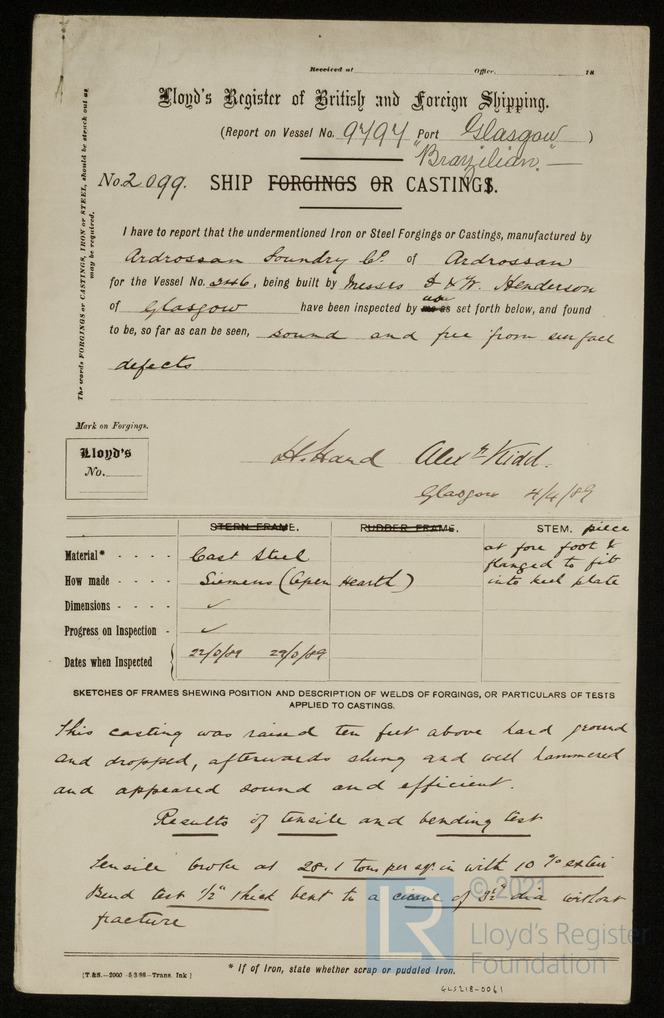 Received at Office, 18
Lloyd's Register of British and Foreign Shipping.
(Report on Vessel No. 9797 Port Glasgow )
"Brazilian."
No. 2099. SHIP FORGINGS OR CASTINGS.
The words FORGINGS or CASTINGS, IRON or STEEL, should be struck out as
may be required.
I have to report that the undermentioned Iron or Steel Forgings or Castings, manufactured by
Ardrossan Foundry Co. of Ardrossan
for the Vessel No. 246, being built by Messrs D & W. Henderson
of Glasgow have been inspected by me as set forth below, and found
to be, so far as can be seen, sound and free from surface
defects
Mark on Forgings.
Lloyd's
No.
H. Hand Alexr Kidd.
Glasgow 4/4/89
STERN FRAME. RUDDER FRAME. STEM. piece
at fore foot &
flanged to fit
into keel plate
Material* - - - - Cast Steel
How made - - - - Siemens (Open Hearth)
Dimensions - - - - ✓
Progress on Inspection - ✓
Dates when Inspected
SKETCHES OF FRAMES SHEWING POSITION AND DESCRIPTION OF WELDS OF FORGINGS, OR PARTICULARS OF TESTS
APPLIED TO CASTINGS.
This casting was raised ten feet above hard ground
and dropped, afterwards slung and well hammered
and appeared sound and efficient.
Results of tensile and bending test
Tensile broke at 28.1 tons per sq. in with 10 % exten
Bend test 1/2" thick bent to a curve of dia without
fracture
* If of Iron, state whether scrap or puddled Iron.
[T.&S.—2000 -5/3/88—Trans. Ink]
GLS218-0061
LR
© 2021
Lloyd's Register
Foundation